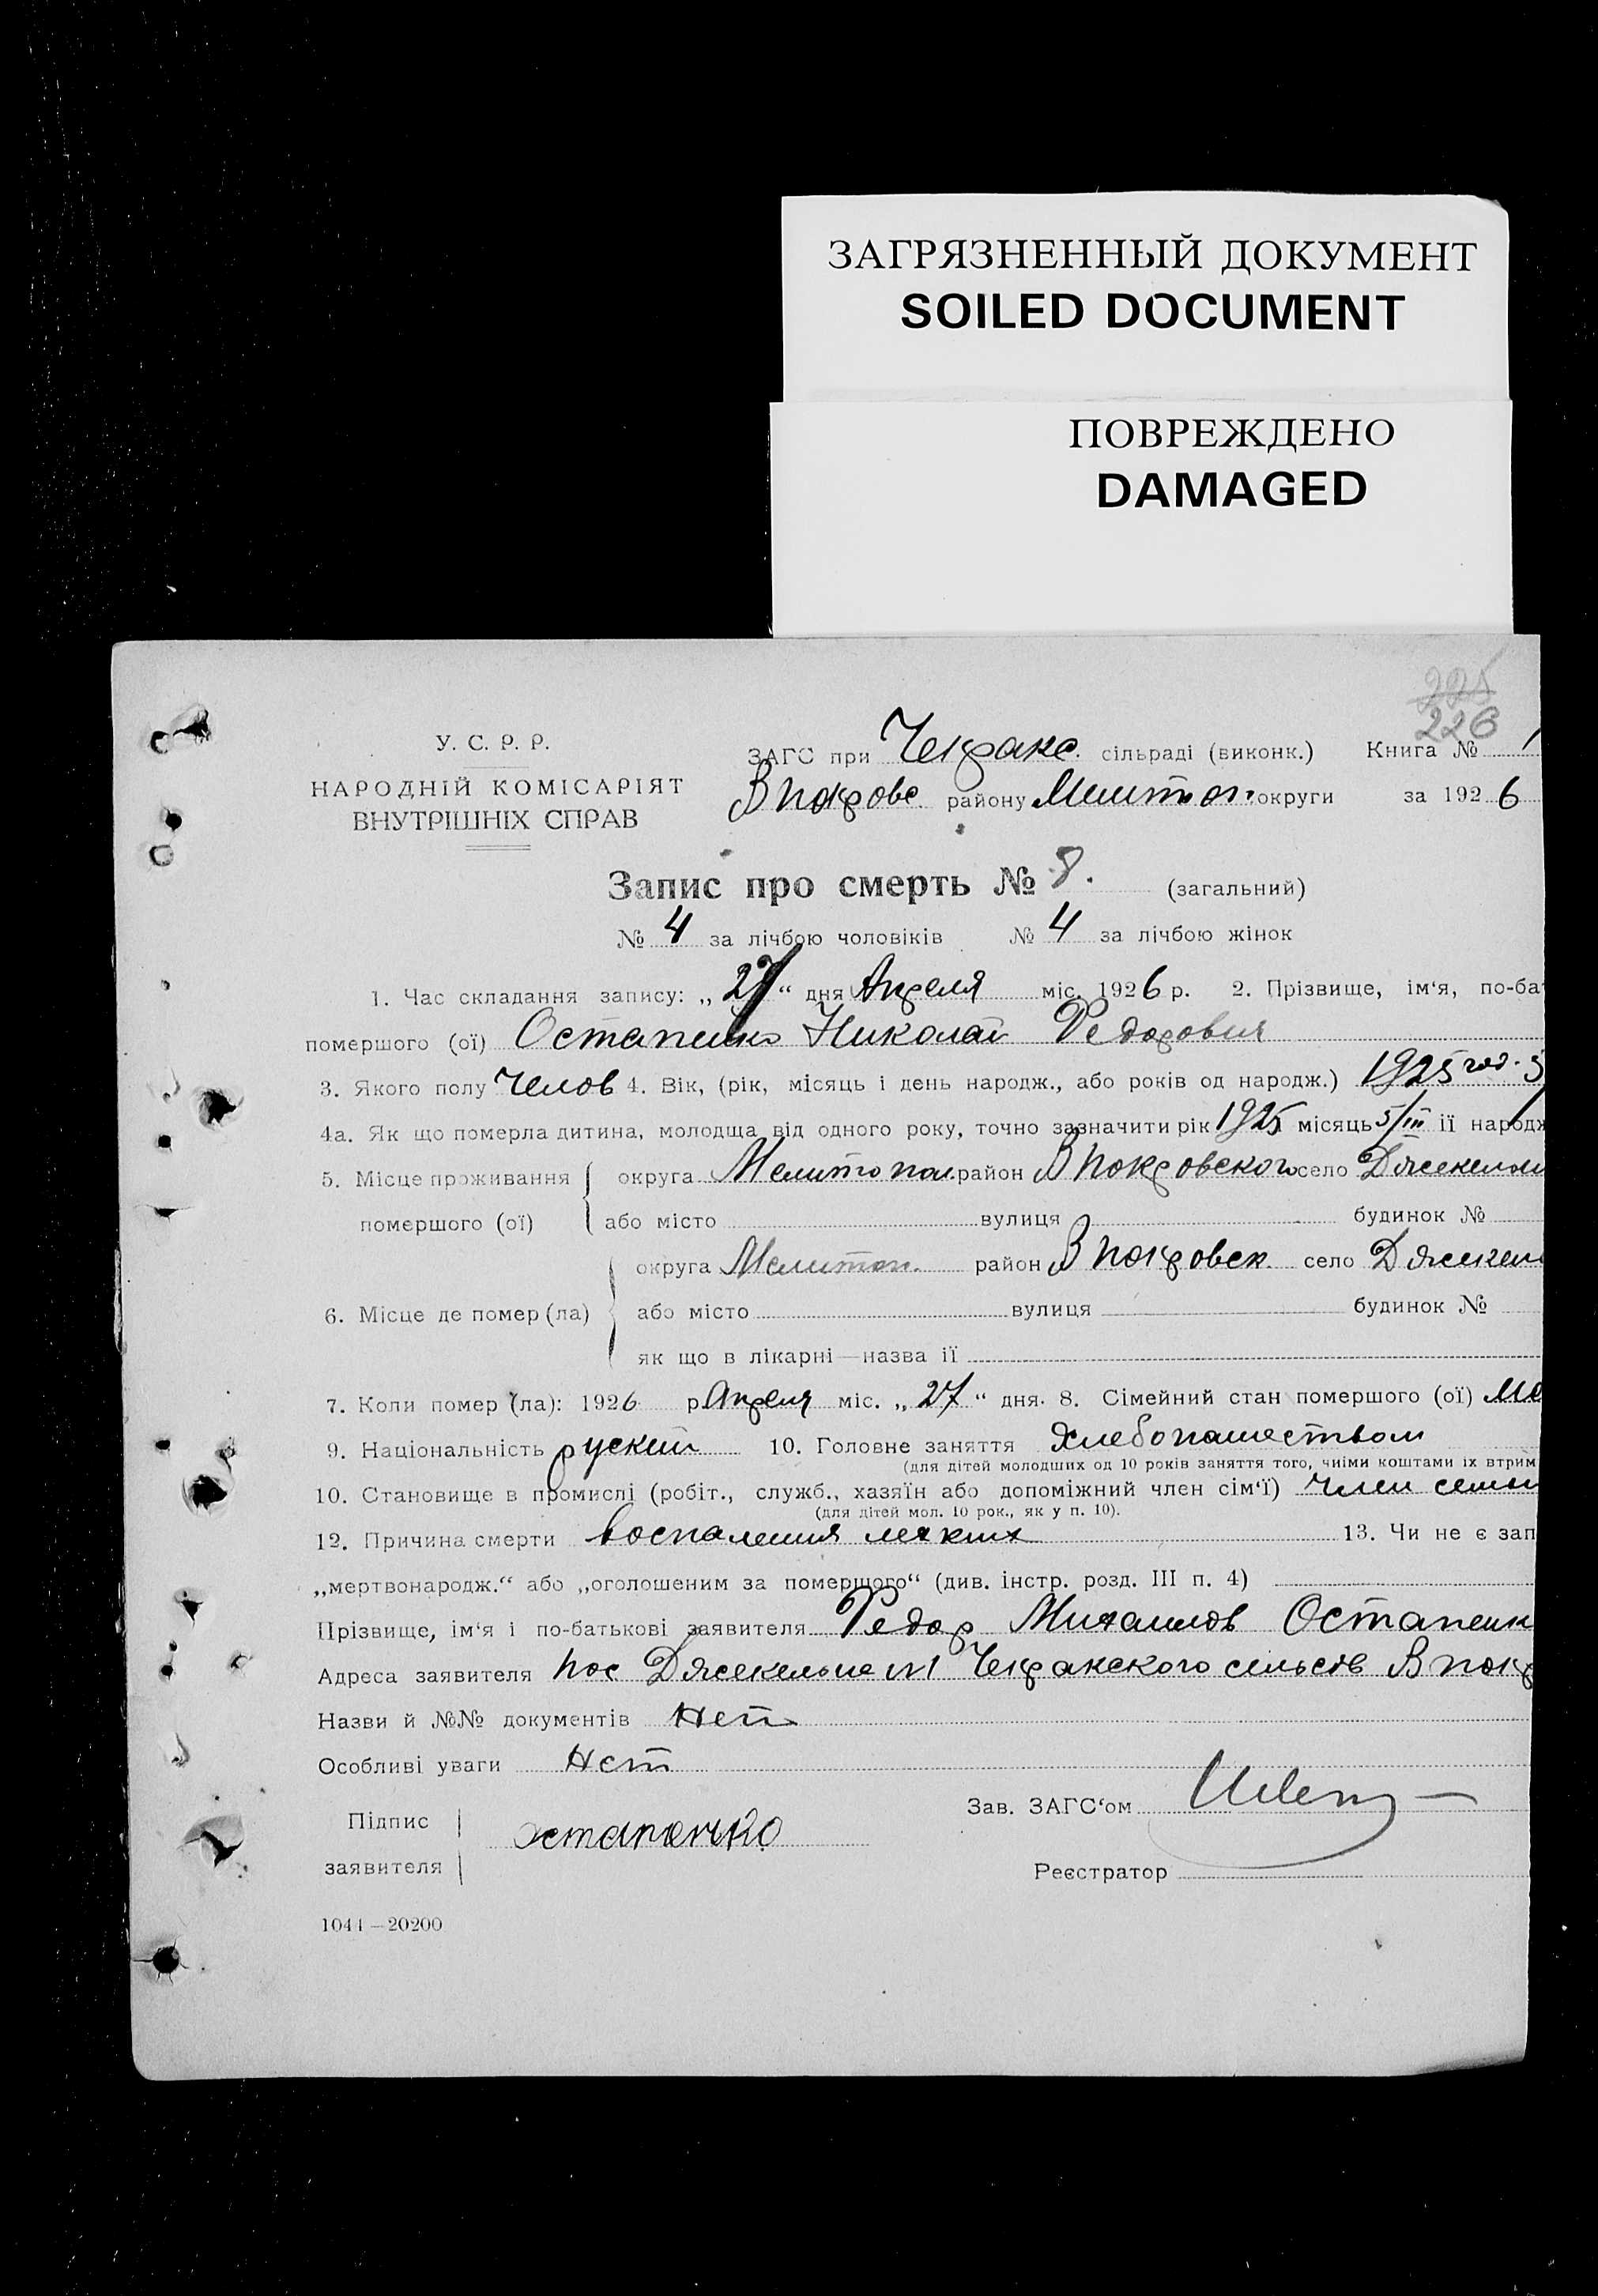 ЗАГРЯЗНЕННЫЙ ДОКУМЕНТ
SOILED DOCUMENT
ПОВРЕЖДЕНО
DAMAGED
225
226
У. С. Р. Р.
НАРОДНІЙ КОМІСАРІЯТ
ВНУТРІШНІХ СПРАВ
ЗАГС при Чекракс. сільраді (виконк.) Книга № 1
В покровс. району Мелитоп. округи за 1926
Запис про смерть № 8. (загальний)
№ 4 за лічбою чоловіків № 4 за лічбою жінок
1. Час складання запису: „27“ дня Апреля міс. 1926 р. 2. Прізвище, ім‘я, по-ба
помершого (ої) Остапенко Николай Федорович
3. Якого полу Челов 4. Вік, (рік, місяць і день народж., або років од народж.) 1925 год. 5
4а. Як що померла дитина, молодша від одного року, точно зазначити рік 1925 місяць 5/III її народж
5. Місце проживання округа Мелитопол. район В покровского село
помершого (ої) або місто вулиця будинок №
округа Мелитоп. район В покровск. село
6. Місце де помер (ла) або місто вулиця будинок №
як що в лікарні—назва її
7. Коли помер (ла): 1926 р. Апреля міс. „27“ дня. 8. Сімейний стан помершого (ої)
9. Національність руский 10. Головне заняття Хлебопашеством
(для дітей молодших од 10 років заняття того, чиїми коштами їх втрим
10. Становище в промислі (робіт., служб., хазяїн або допоміжний член сім‘ї) член семьи
(для дітей мол. 10 рок., як у п. 10).
12. Причина смерти Воспаления легких 13. Чи не є зап
„мертвонародж.“ або „оголошеним за померщого“ (див. інстр. розд. III п. 4)
Прізвище, ім‘я і по-батькові заявителя Федор Михаилов Остапенк
Адреса заявителя пос Джекельне №1 Чекракского сельсов В покр
Назви й №№ документів Нет
Особливі уваги Нет
Зав. ЗАГС‘ом
Підпис
заявителя Остапенко
Реєстратор
1044—20200